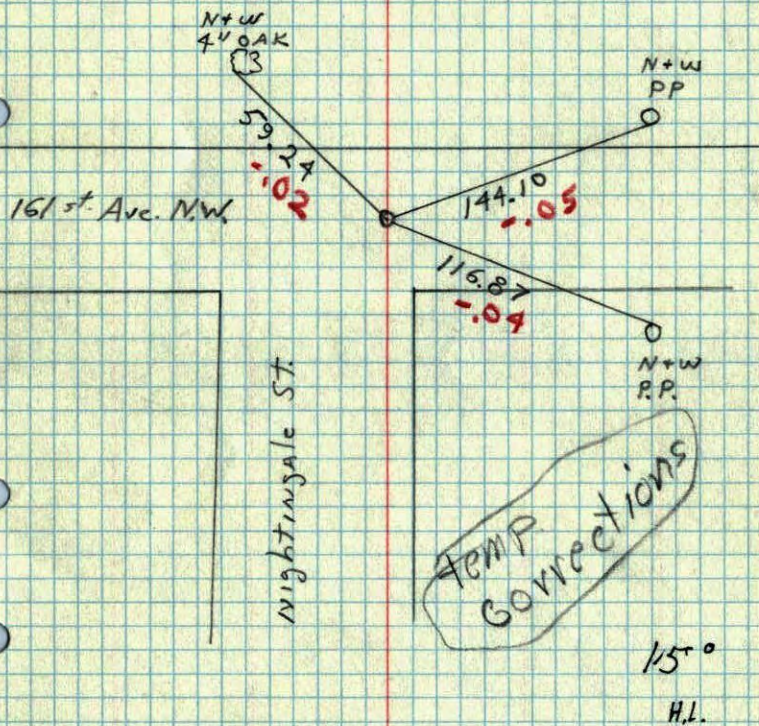 N+W
4" OAK
N+W
PP
59.24
-.02
144.10
-.05
161 st. Ave. N.W.
116.87
-.04
N+W
P.P.
Nightingale St.
temp
corrections
15°
H.I.